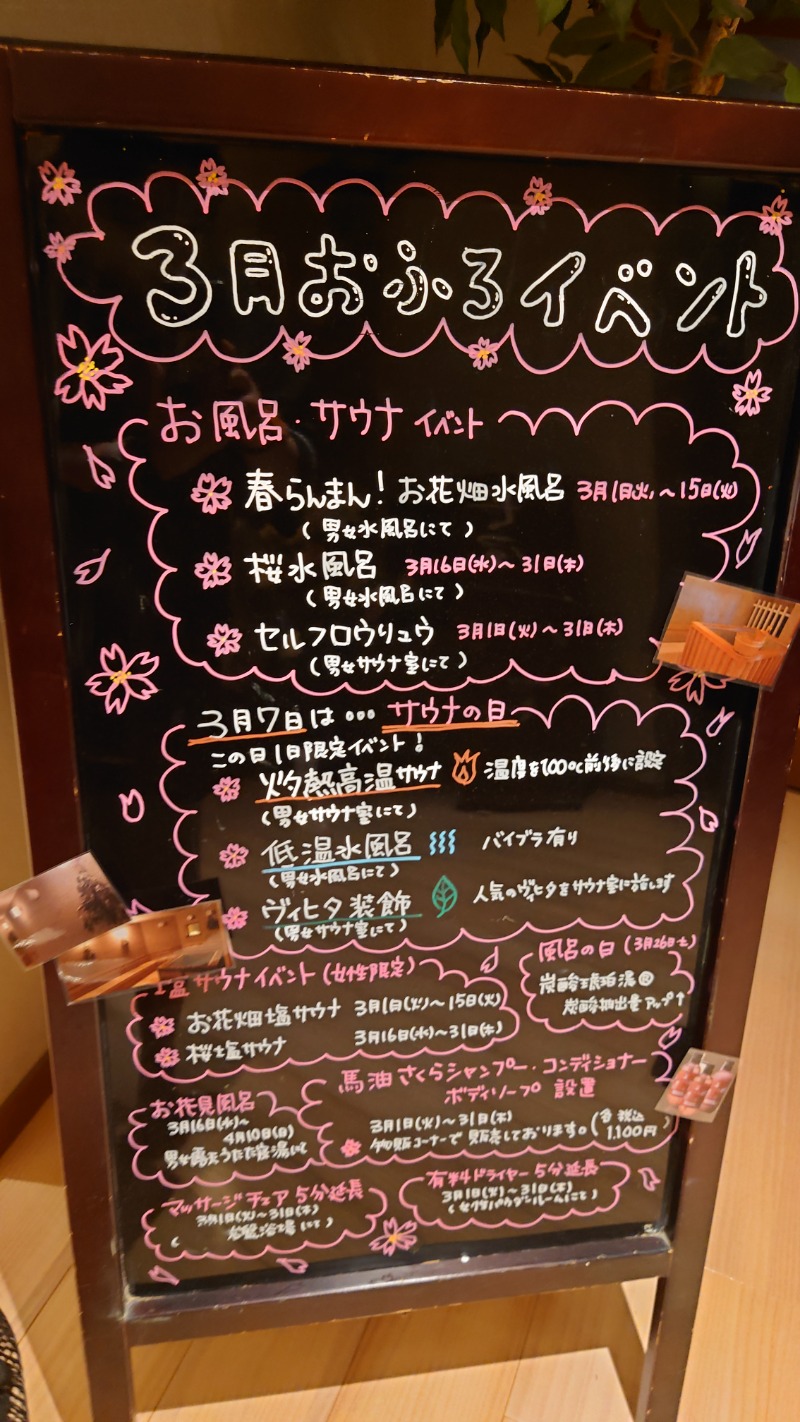 3月おふろイベント
お風呂・サウナイベント
春らんまん!お花畑水風呂 3月1日(火)～15日(火)
(男女水風呂にて)
桜水風呂 3月16日(水)～31日(木)
(男女水風呂にて)
セルフロウリュウ 3月1日(火)～31日(木)
(男女サウナ室にて)
3月7日は…サウナの日
この日1日限定イベント!
灼熱高温サウナ 温度を100℃前後に設定
(男女サウナ室にて)
低温水風呂 バイブラ有り
(男女水風呂にて)
ヴィヒタ装飾 人気のヴィヒタをサウナ室に施します
(男女サウナ室にて)
塩サウナイベント(女性限定)
お花畑塩サウナ 3月1日(火)～15日(火)
桜塩サウナ 3月16日(水)～31日(木)
風呂の日(3月26日土)
炭酸琥珀湯®
炭酸抽出量アップ↑
馬油さくらシャンプー・コンディショナー
ボディソープ 設置
3月1日(火)～31日(木)
物販コーナーで販売しております。(各税込1,100円)
お花見風呂
3月16日(水)～
4月10日(日)
男女露天うたた寝湯にて
マッサージチェア5分延長
3月1日(火)～31日(木)
(にて)
有料ドライヤー5分延長
3月1日(火)～31日(木)
(女性パウダールームにて)